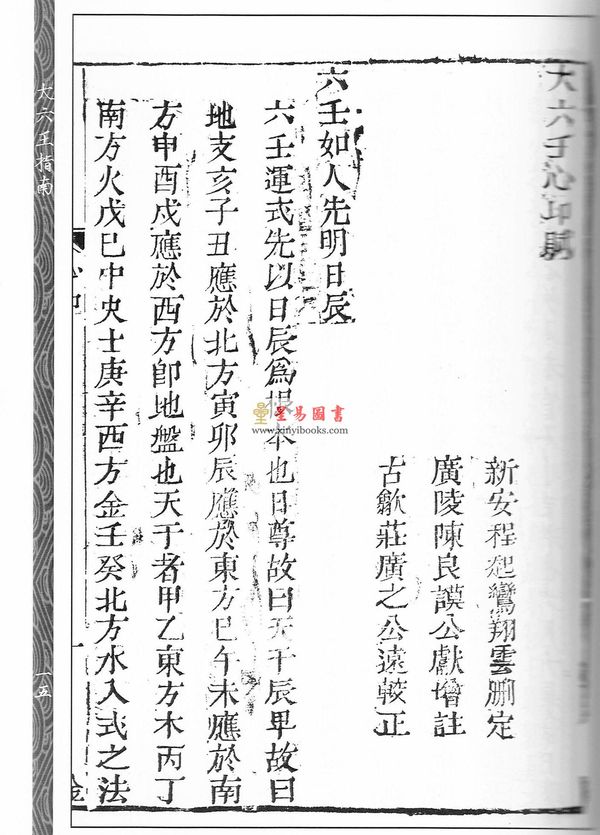 大六壬心印賦
新安程起鸞翔雲刪定
廣陵陳良謨公獻增註
古歙莊廣之公遠較正
六壬如人先明日辰
六壬運式先以日辰為根本也日尊故曰天干辰卑故曰
地支亥子丑應於北方寅卯辰應於東方巳午未應於南
方申酉戌應於西方卽地盤也天干者甲乙東方木丙丁
南方火戊巳中央土庚辛西方金壬癸北方水入式之法
大六壬指南
一五
星易圖書
www.xinyibooks.com